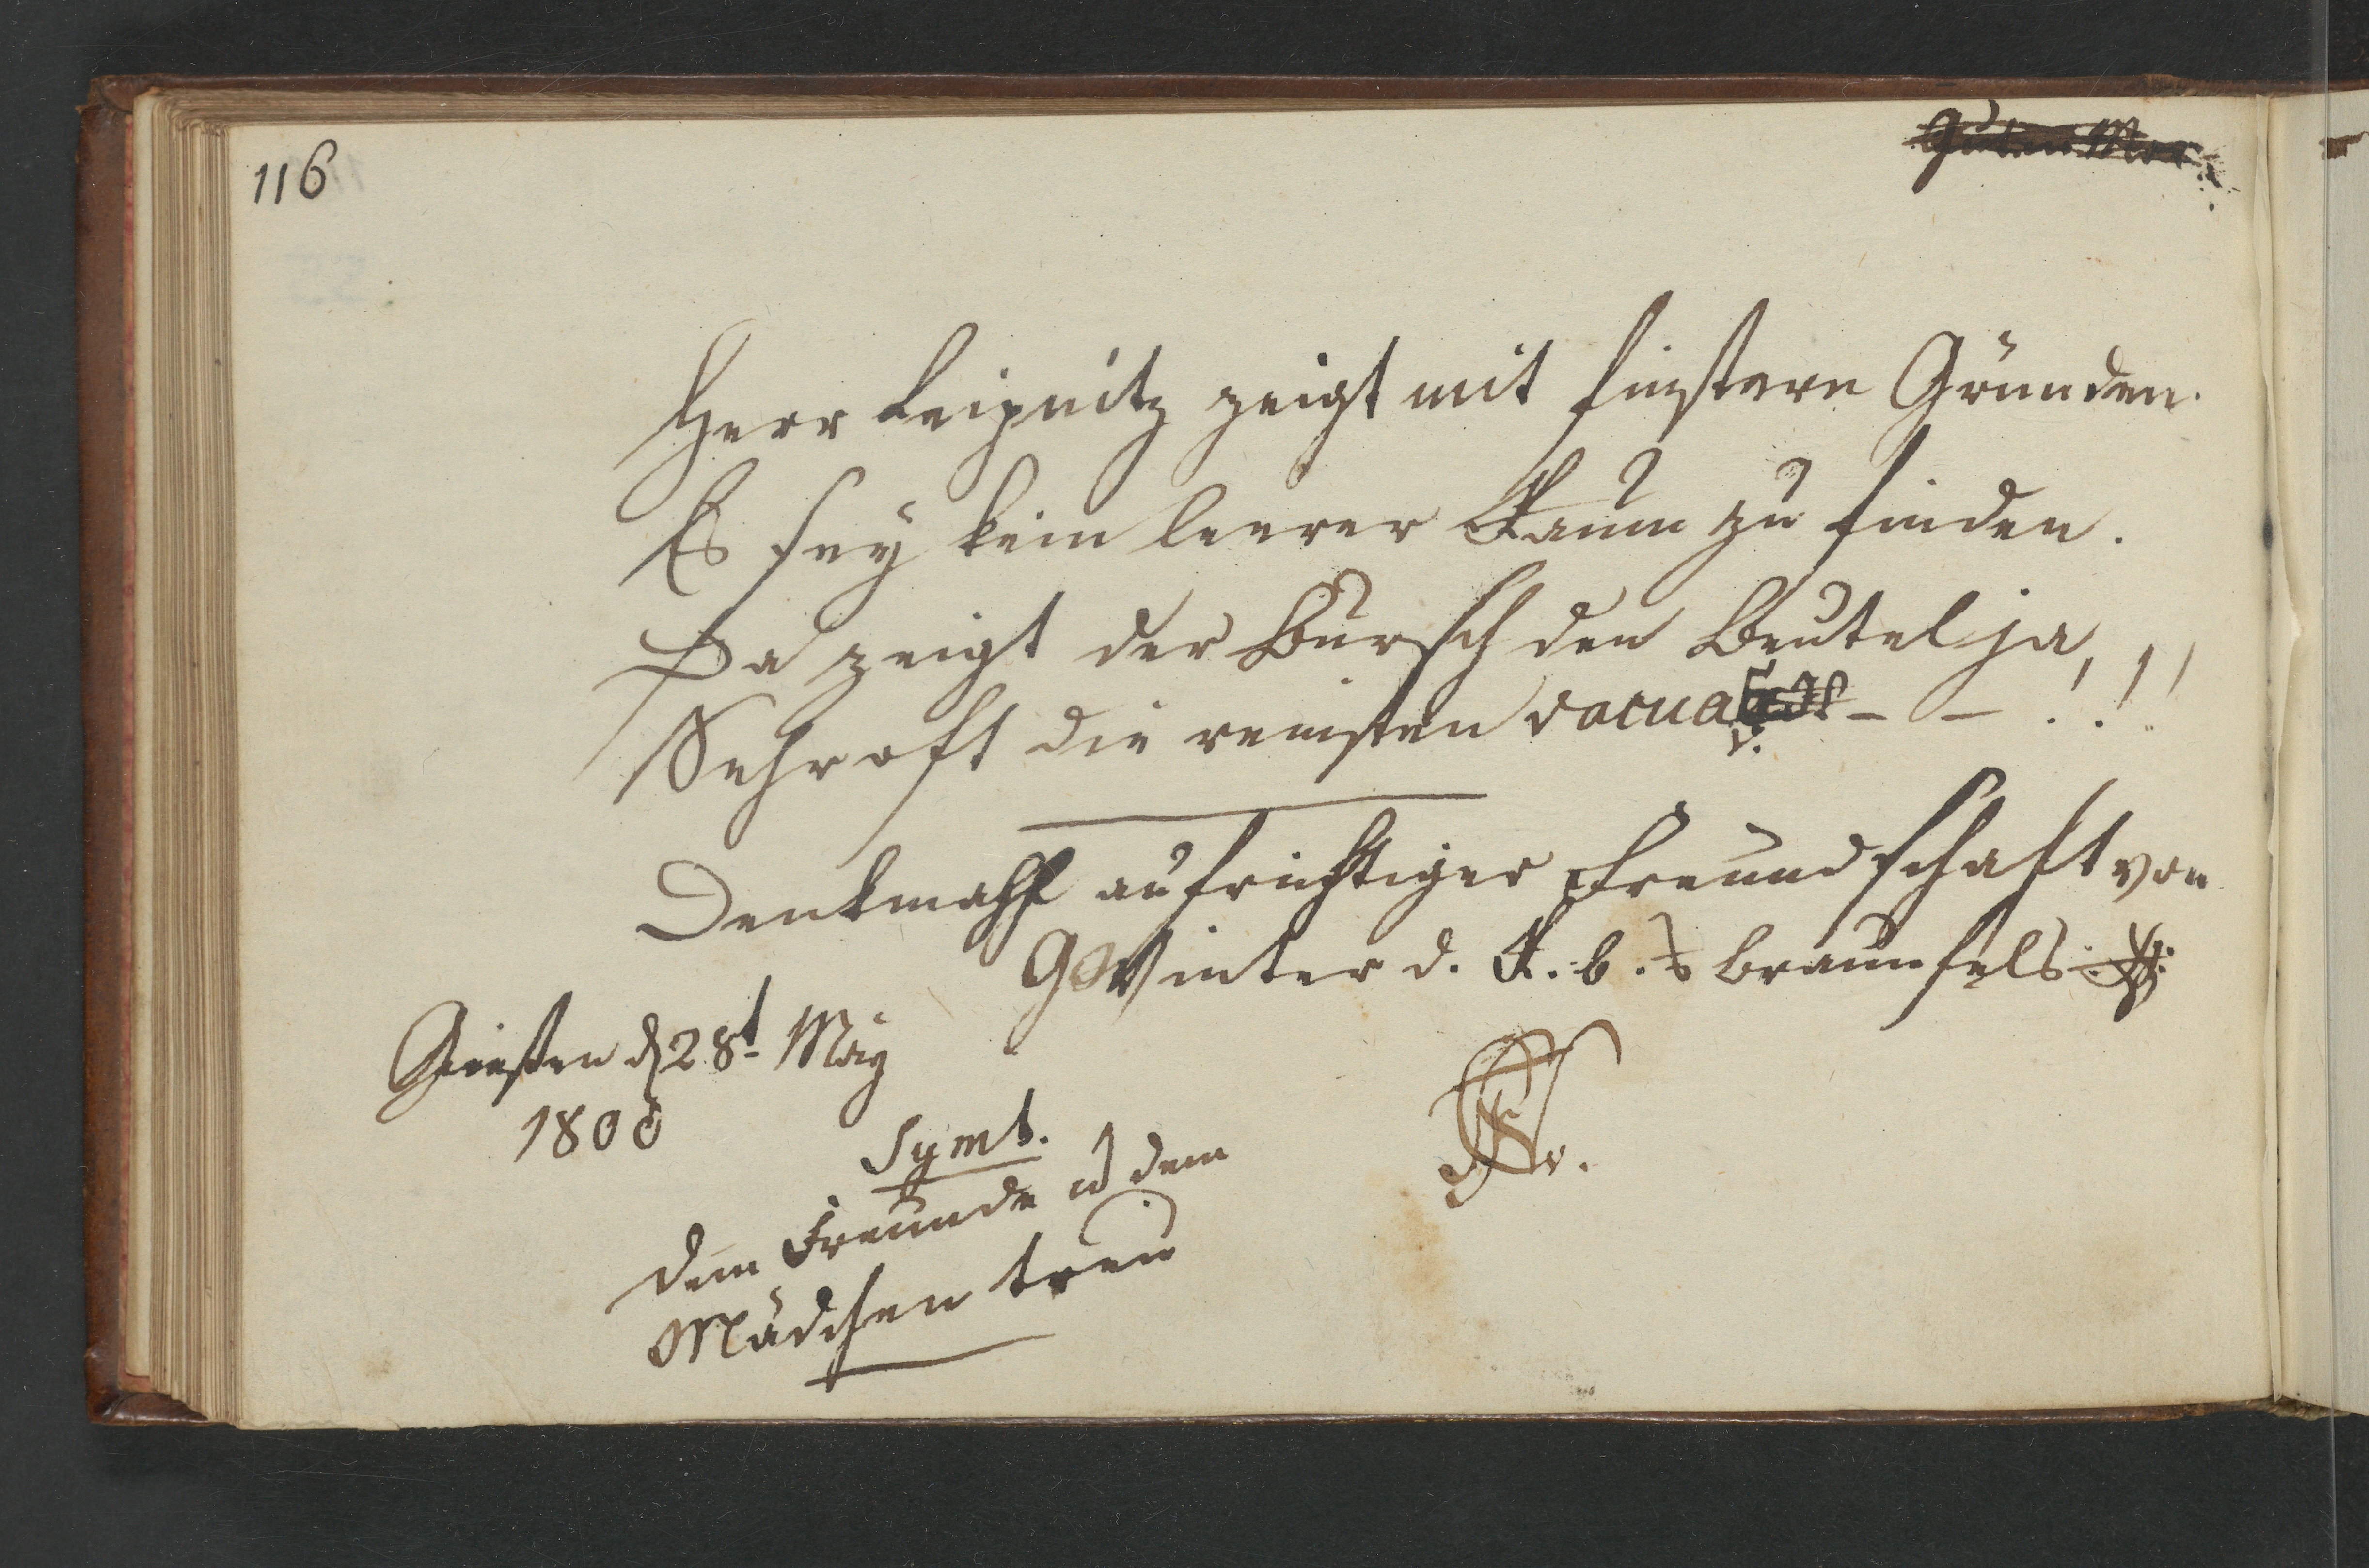 116
Guten Mor
Herr Leipnitz zeigt mit finstern Gründen.
Es sey kein leerer Raum zu finden.
Da zeigt der Bursch den Beutel ja,
Sehr oft die reinsten vacua - - !!!
Denkmahl aufrichtiger Freundschaft von
GWinter d. R. b. a Braunfels
Giesen d 28t May
1800
Symb.
Dem Freunde u dem
Mädchen treu